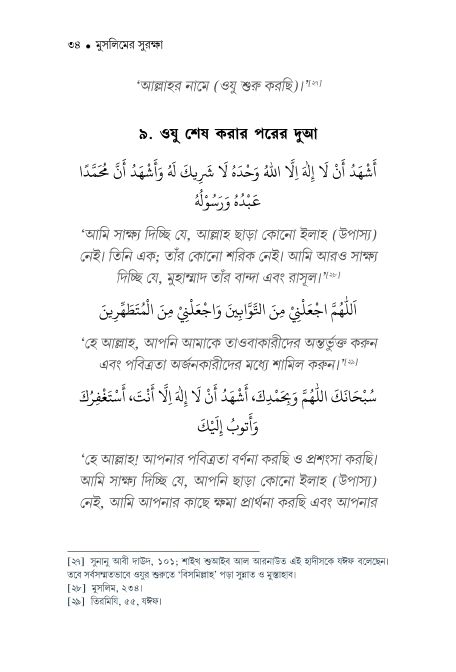 ৩৪ • মুসলিমের সুরক্ষা
‘আল্লাহর নামে (ওযু শুরু করছি)।’[২৭]
৯. ওযু শেষ করার পরের দুআ
أَشْهَدُ أَنْ لَا إِلٰهَ إِلَّا اللهُ وَحْدَهُ لَا شَرِيكَ لَهُ وَأَشْهَدُ أَنَّ مُحَمَّدًا
عَبْدُهُ وَرَسُوْلُهُ
‘আমি সাক্ষ্য দিচ্ছি যে, আল্লাহ ছাড়া কোনো ইলাহ (উপাস্য)
নেই। তিনি এক; তাঁর কোনো শরিক নেই। আমি আরও সাক্ষ্য
দিচ্ছি যে, মুহাম্মাদ তাঁর বান্দা এবং রাসূল।’[২৮]
اَللّٰهُمَّ اجْعَلْنِيْ مِنَ التَّوَّابِينَ وَاجْعَلْنِيْ مِنَ الْمُتَطَهِّرِينَ
‘হে আল্লাহ, আপনি আমাকে তাওবাকারীদের অন্তর্ভুক্ত করুন
এবং পবিত্রতা অর্জনকারীদের মধ্যে শামিল করুন।’[২৯]
سُبْحَانَكَ اللّٰهُمَّ وَبِحَمْدِكَ، أَشْهَدُ أَنْ لَا إِلٰهَ إِلَّا أَنْتَ، أَسْتَغْفِرُكَ
وَأَتُوبُ إِلَيْكَ
‘হে আল্লাহ! আপনার পবিত্রতা বর্ণনা করছি ও প্রশংসা করছি।
আমি সাক্ষ্য দিচ্ছি যে, আপনি ছাড়া কোনো ইলাহ (উপাস্য)
নেই, আমি আপনার কাছে ক্ষমা প্রার্থনা করছি এবং আপনার
[২৭] সুনানু আবী দাউদ, ১০১; শাইখ শুআইব আল আরনাউত এই হাদীসকে যঈফ বলেছেন।
তবে সর্বসম্মতভাবে ওযুর শুরুতে ‘বিসমিল্লাহ’ পড়া সুন্নাত ও মুস্তাহাব।
[২৮] মুসলিম, ২৩৪।
[২৯] তিরমিযি, ৫৫, যঈফ।